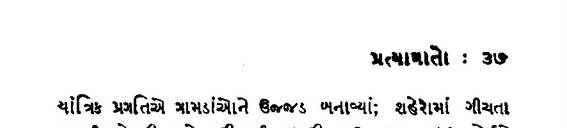 પ્રત્યાઘાતો : ૩૭
યાંત્રિક પ્રગતિએ ગામડાંઓને ઉજ્જડ બનાવ્યાં; શહેરોમાં ગીચતા